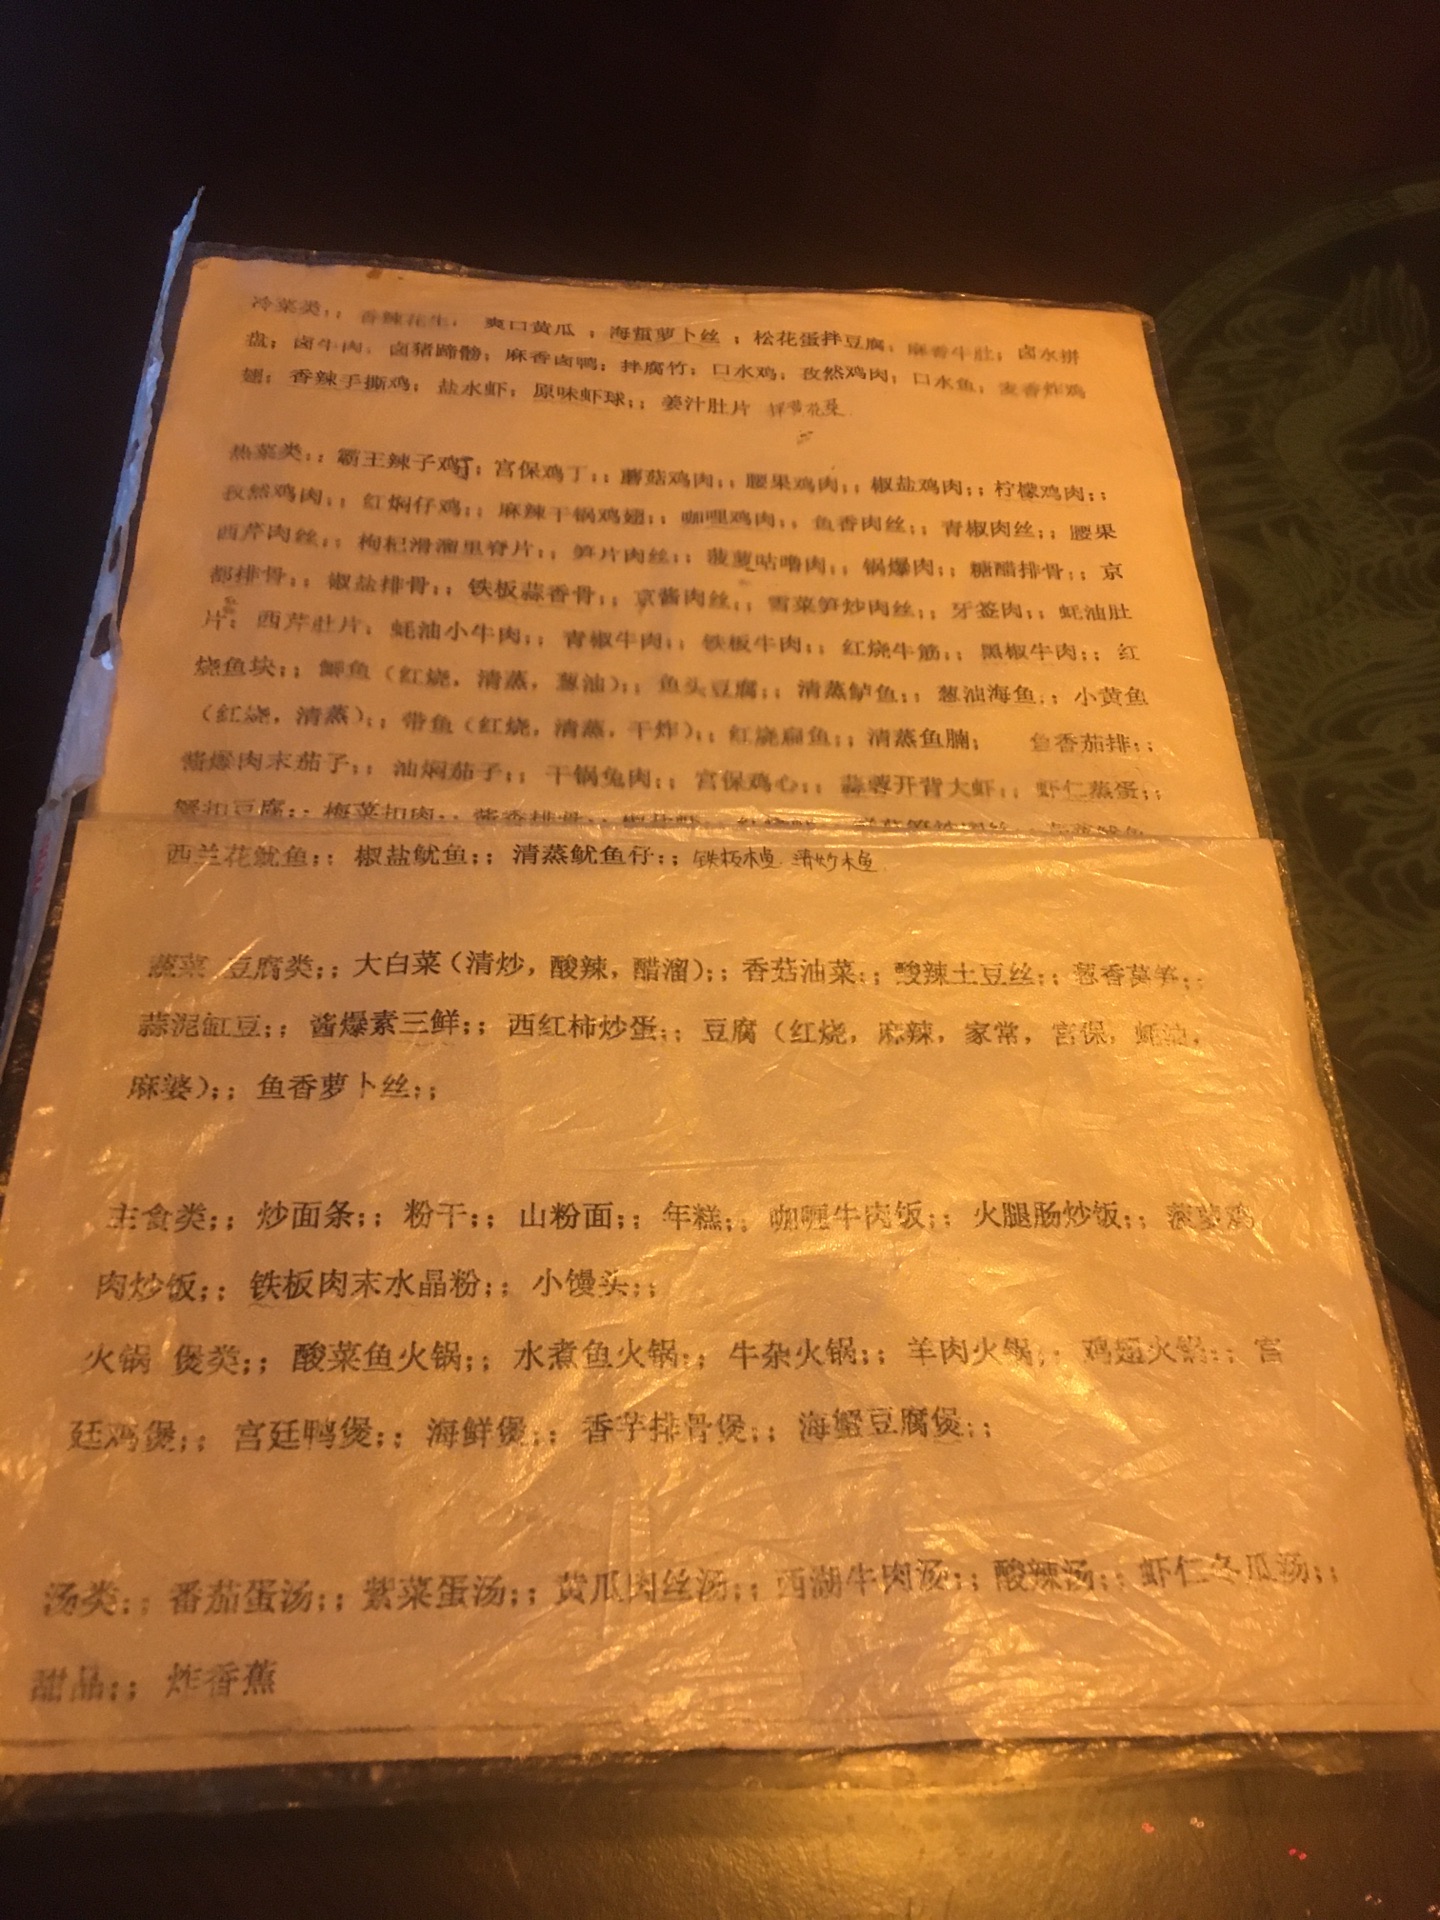 冷菜类;; 香辣花生; 爽口黄瓜 ; 海蜇萝卜丝 ; 松花蛋拌豆腐; 麻香牛肚; 卤水拼
盘; 卤牛肉; 卤猪蹄膀; 麻香卤鸭; 拌腐竹; 口水鸡; 孜然鸡肉; 口水鱼; 麦香炸鸡
翅; 香辣手撕鸡; 盐水虾; 原味虾球;; 姜汁肚片
热菜类;; 霸王辣子鸡丁; 宫保鸡丁;; 蘑菇鸡肉;; 腰果鸡肉;; 椒盐鸡肉;; 柠檬鸡肉;;
孜然鸡肉;; 红焖仔鸡;; 麻辣干锅鸡翅;; 咖哩鸡肉;; 鱼香肉丝;; 青椒肉丝;; 腰果
西芹肉丝;; 枸杞滑溜里脊片;; 笋片肉丝;; 菠萝咕噜肉;; 锅爆肉;; 糖醋排骨;; 京
都排骨;; 椒盐排骨;; 铁板蒜香骨;; 京酱肉丝;; 雪菜笋炒肉丝;; 牙签肉;; 蚝油肚
片; 西芹肚片; 蚝油小牛肉;; 青椒牛肉;; 铁板牛肉;; 红烧牛筋;; 黑椒牛肉;; 红
烧鱼块;; 鲫鱼（红烧, 清蒸, 葱油）;; 鱼头豆腐;; 清蒸鲈鱼;; 葱油海鱼;; 小黄鱼
（红烧, 清蒸）;; 带鱼（红烧, 清蒸, 干炸）;; 红烧扁鱼;; 清蒸鱼腩; 鱼香茄排;;
酱爆肉末茄子;; 油焖茄子;; 干锅兔肉;; 宫保鸡心;; 蒜蓉开背大虾;; 虾仁蒸蛋;;
蟹扣豆腐;; 梅菜扣肉;;
西兰花鱿鱼;; 椒盐鱿鱼;; 清蒸鱿鱼仔;; 铁板木鱼 清炒木鱼
蔬菜 豆腐类;; 大白菜（清炒, 酸辣, 醋溜）;; 香菇油菜;; 酸辣土豆丝;; 葱香莴笋;;
蒜泥缸豆;; 酱爆素三鲜;; 西红柿炒蛋;; 豆腐（红烧, 麻辣, 家常, 宫保, 蚝油,
麻婆）;; 鱼香萝卜丝;;
主食类;; 炒面条;; 粉干;; 山粉面;; 年糕;; 咖喱牛肉饭;; 火腿肠炒饭;; 菠萝鸡
肉炒饭;; 铁板肉末水晶粉;; 小馒头;;
火锅 煲类;; 酸菜鱼火锅;; 水煮鱼火锅;; 牛杂火锅;; 羊肉火锅;; 鸡翅火锅;; 宫
廷鸡煲;; 宫廷鸭煲;; 海鲜煲;; 香芋排骨煲;; 海蟹豆腐煲;;
汤类;; 番茄蛋汤;; 紫菜蛋汤;; 黄瓜肉丝汤;; 西湖牛肉汤;; 酸辣汤;; 虾仁冬瓜汤;;
甜品;; 炸香蕉